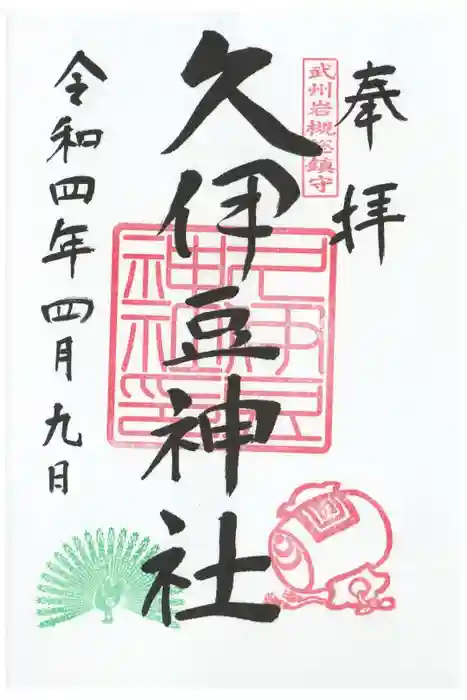 奉拝
武州岩槻総鎮守
久伊豆神社
令和四年四月九日